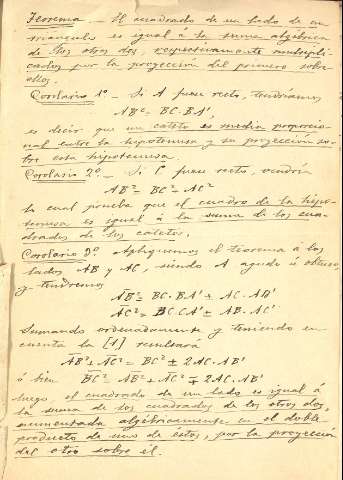 Teorema — El cuadrado de un lado de un
triángulo es igual á la suma algébrica
de los otros dos, respectivamente multipli-
cados por la proyección del primero sobre
ellos.
Corolario 1º — Si A fuese recto, tendríamos
AB² = BC · BA',
es decir que un cateto es media proporcio-
nal entre la hipotenusa y su proyección so-
bre esta hipotenusa.
Corolario 2º — Si C fuese recto, vendría
AB² = BC² + AC²
lo cual prueba que el cuadro de la hipo-
tenusa es igual á la suma de los cua-
drados de los catetos.
Corolario 3º Apliquemos el teorema á los
lados AB y AC, siendo A agudo ú obtuso,
y tendremos
AB² = BC · BA' ± AC · AB'
AC² = BC CA' ± AB · AC'
Sumando ordenadamente y teniendo en
cuenta la [1] resultará
AB² + AC² = BC² ± 2AC · AB'
ó bien BC² = AB² + AC² ∓ 2AC · AB'
luego, el cuadrado de un lado es igual á
la suma de los cuadrados de los otros dos,
aumentada algébricamente en el doble
producto de uno de éstos, por la proyección
del otro sobre él.